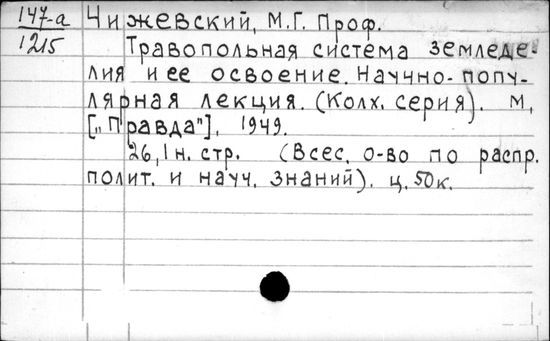 147-а
1215
Чижевский, М.Г. Проф.
Травопольная система земледе-
лия и ее освоение. Научно-попу-
лярная лекция. (Колх. серия). М,
[„Правда"], 1949.
26, 1 н. стр. (Всес. о-во по распр.
полит. и науч. знаний). ц. 50 к.